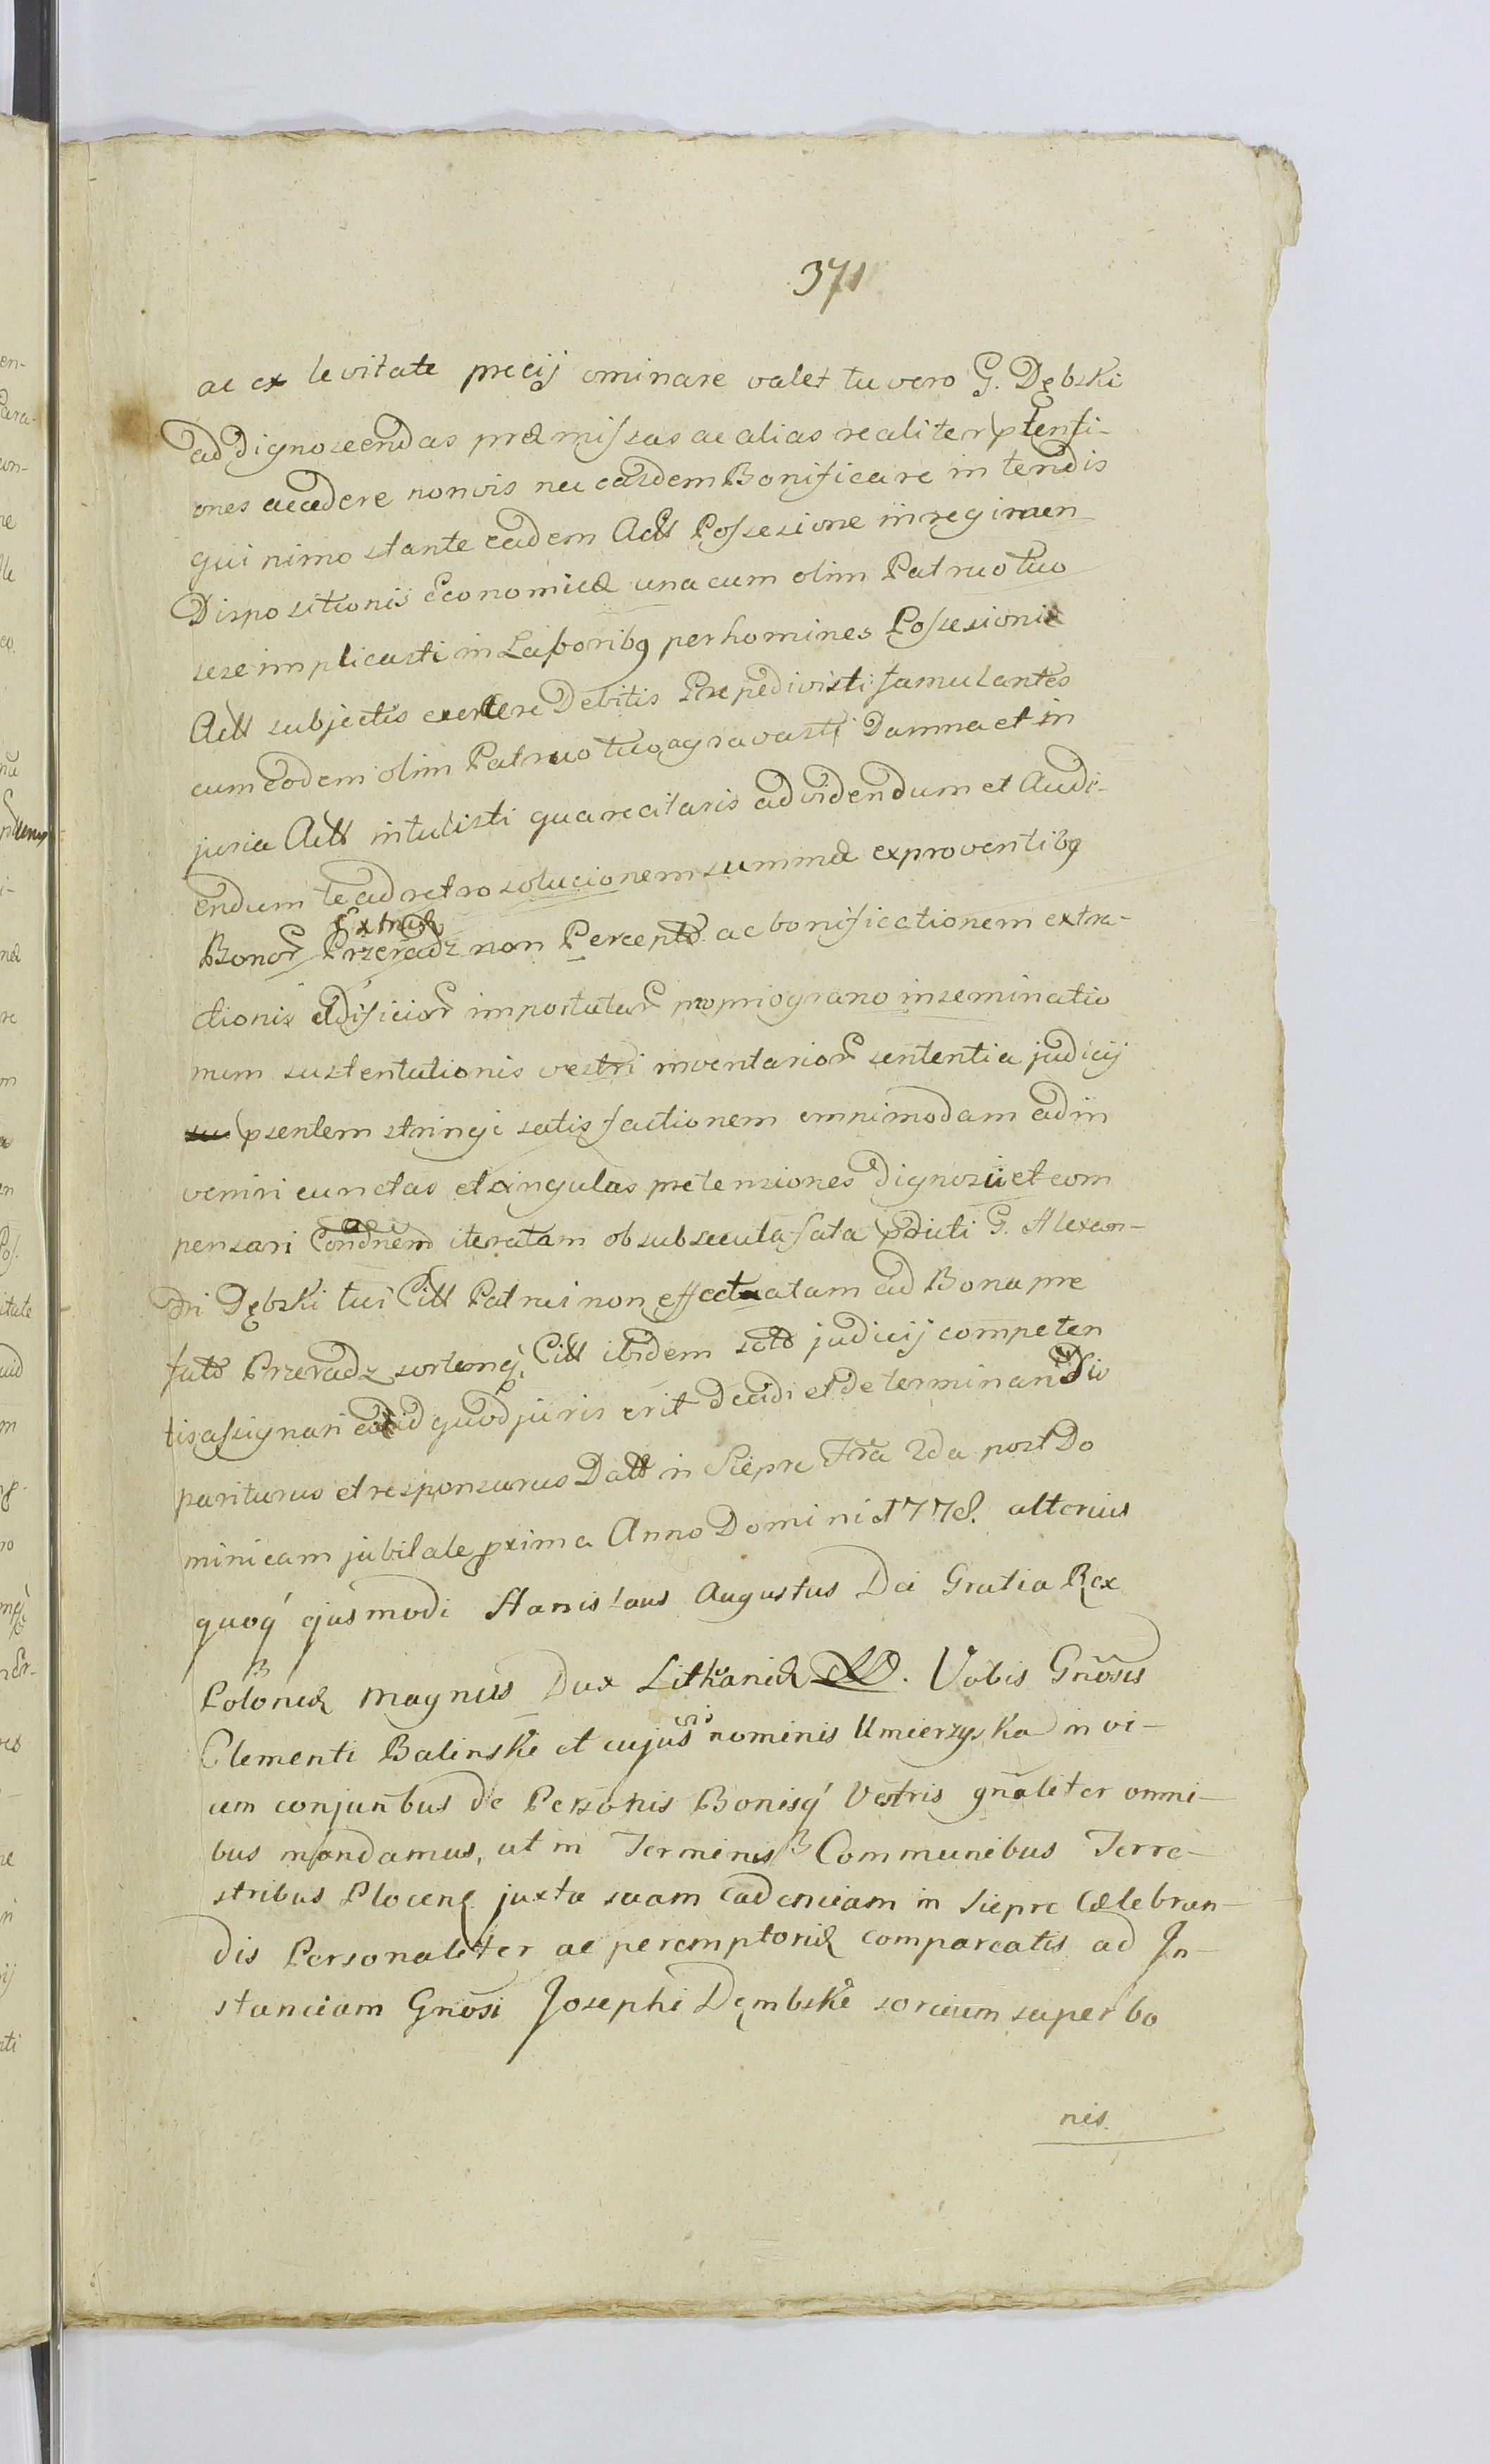 371
ac ex levitate precij ominare valet tu vero G. Dębski
ad Dignoscendas præmissas ac alias realiter ptensi-
ones accedere non vis nec easdem Bonificare intendis
qui nimo stante eadem Actt Possesione in regimen
Dispositionis Economicæ una cum olim Patruo tuo
sese implicasti in Laboribq per homines Possesionis
Actt subjectis exercere Debitis Præpedivisti famulantes
cum eodem olim Patruo tuo agravasti Damna et in
juria Actt intulisti qua re citaris ad videndum et Audi-
endum te ad retro solucionem summæ ex proventibq
Bonor Przeradz non Percepto ac bonificationem extra-
ctionis ædificior importatar proprio grano inseminatio
num sustentationis vestri inventarior sententia judicij
psentem stringi satisfactionem omnimodam adin
veniri cunctas et singulas pretensiones Dignosci et com
pensari Condnem iteratam ob subsecuta fata pdicti G. Alexan-
dri Dębski tui Citt Patrui non effectuatam ad Bona pre
fata Przeradz sortemq Citt ibidem judicij competen
tis assignari et id quod juris erit Decidi et determinari Sis
pariturus et responsurus Datt in Siepre Fra 2da post Do
minicam jubilate pxima Anno Domini 1778. alterius
quoq ejusmodi Stanislaus Augustus Dei Gratia Rex
Poloniæ Magnus Dux Lithaniæ. Vobis Gnosis
Clementi Balinski et cujusvis nominis Umierzyska invi-
cem conjunbus de Personis Bonisq Vestris gnaliter omni-
bus mandamus, ut in Terminis Communibus Terre-
stribus Plocen juxta suam cadenciam in Siepre Cælebran-
dis Personaliter ac peremptorie compareatis ad In-
stanciam Gnosi Josephi Dęmbski sorcium super bo
nis